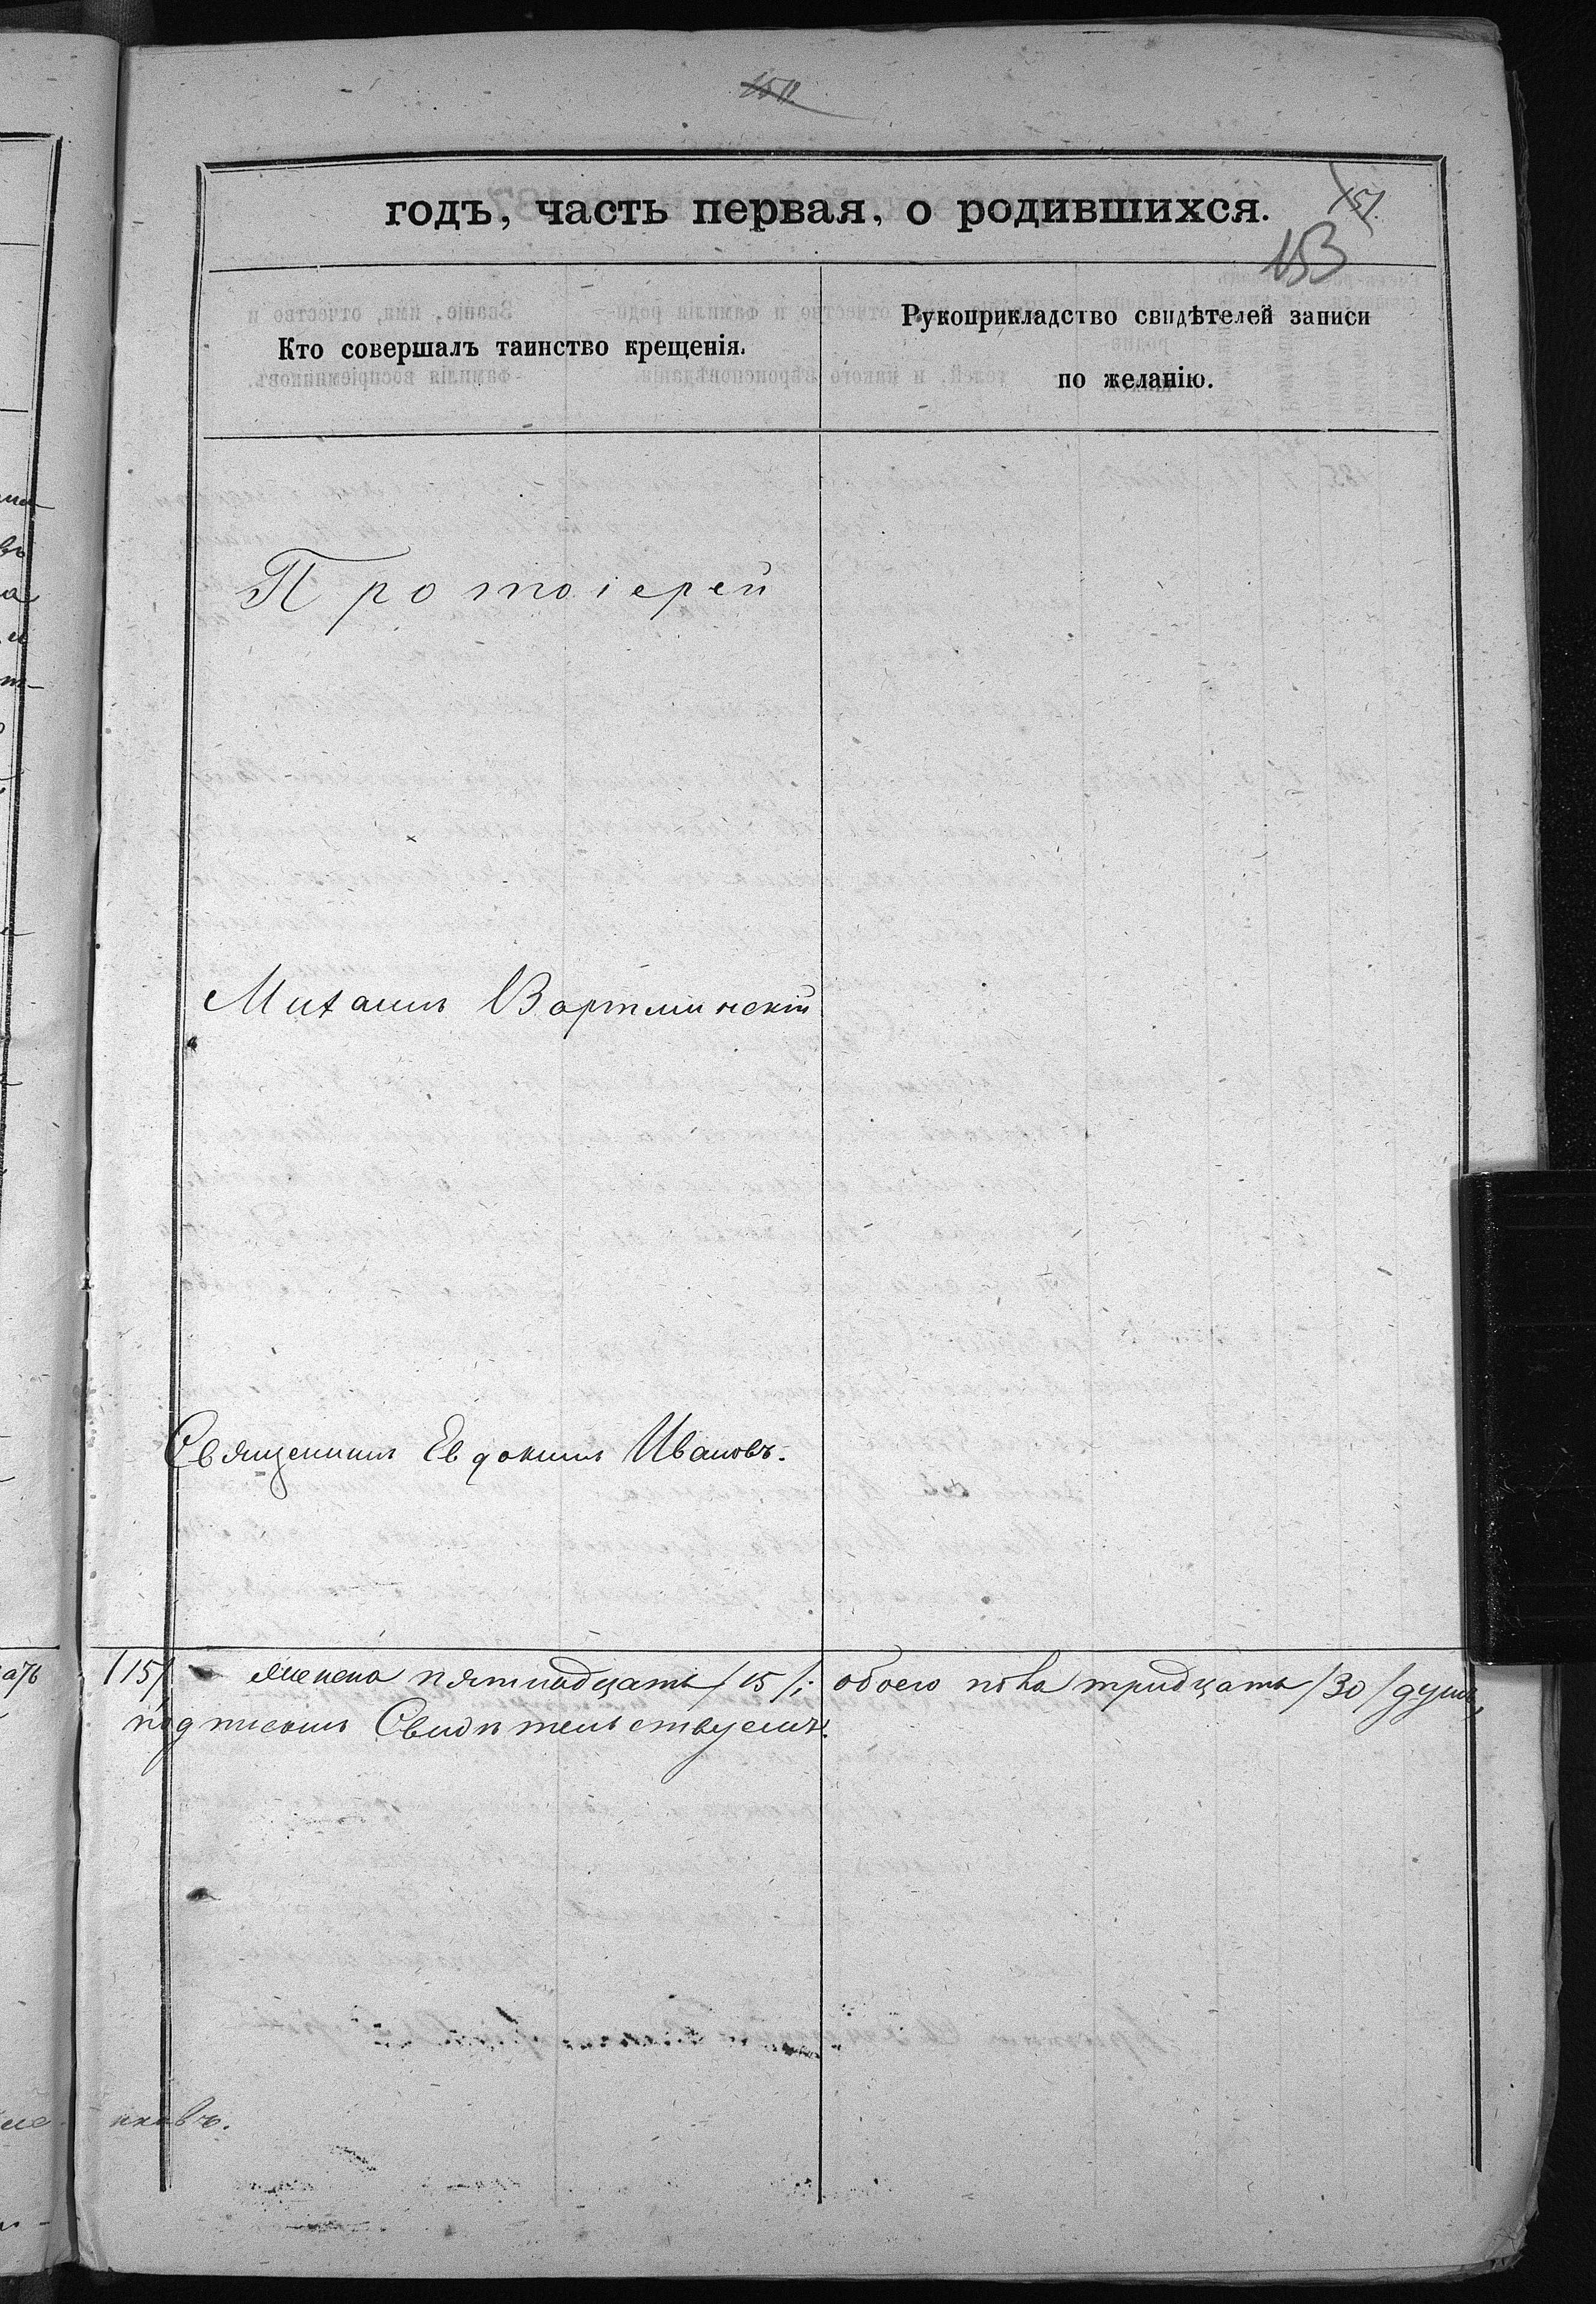 годъ, часть первая, о родившихся.
151.
153
Кто совершалъ таинство крещенія.
Рукоприкладство свидѣтелей записи
по желанію.
Протоіерей
Михаилъ Вартминскій
Священникъ Евдокимъ Ивановъ.
/15/ женска пятнадцать /15/; обоего пола тридцать /30/ душъ,
подписомъ Свидѣтельствуемъ:
ковъ.